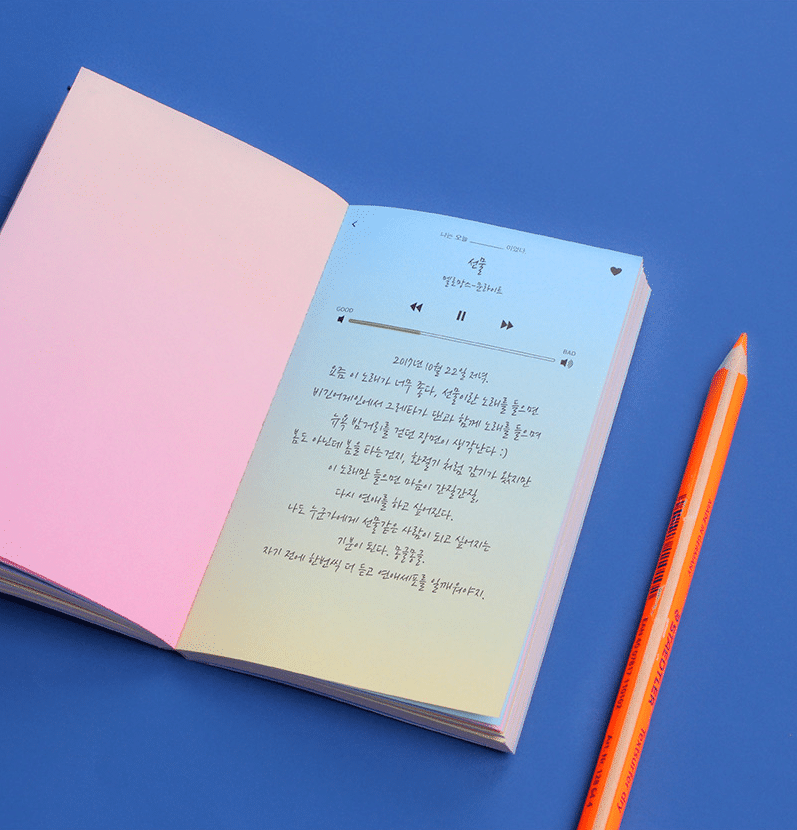 나는 오늘 ______ 이었다
선물
멜로망스-문라이트
GOOD
BAD
2017년 10월 22일 저녁.
요즘 이 노래가 너무 좋다, 선물이란 노래를 들으면
비긴어게인에서 그레타가 댄과 함께 노래를 들으며
뉴욕 밤거리를 걷던 장면이 생각난다 :)
봄도 아닌데 봄을 타는건지, 환절기 처럼 감기가 왔지만
이 노래만 들으면 마음이 간질간질,
다시 연애를 하고 싶어진다.
나도 누군가에게 선물같은 사람이 되고 싶어지는
기분이 된다. 몽글몽글.
자기 전에 한번씩 더 듣고 연애세포를 일깨워야지.
STAEDTLER
Textsurfer dry
Art. Nr. 128 64-4